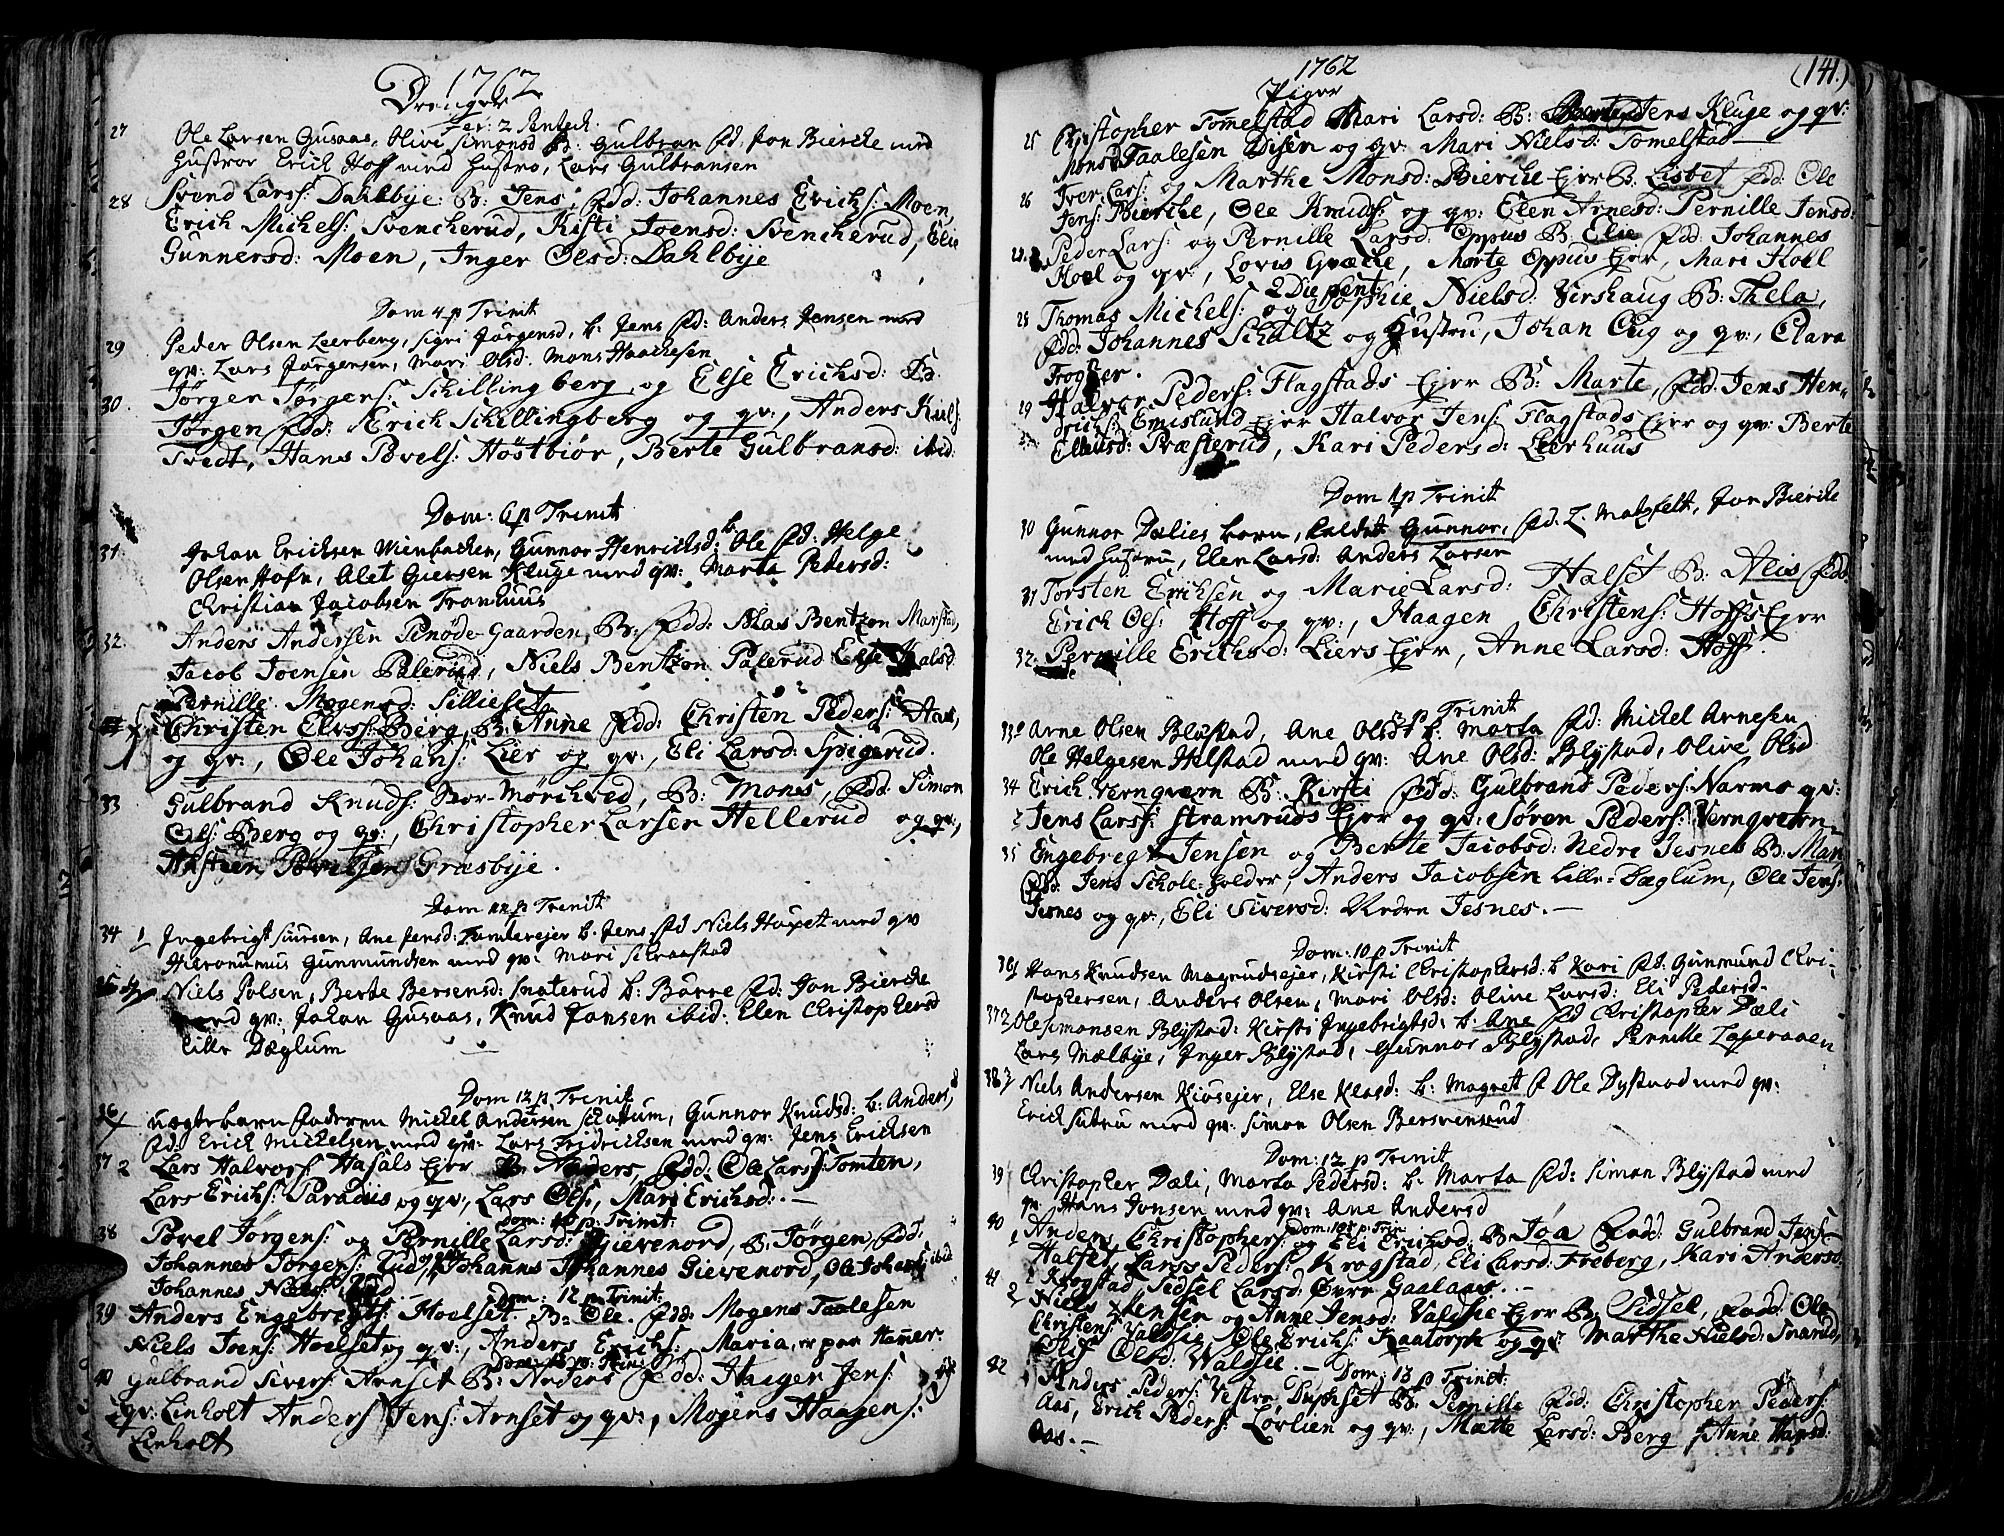 1762
Drenger
Fer: 2 Pentech:
27 Ole Larsen Gusaas, Olivi Simonsd B: Gulbran Fd. Jon Biercke med
Hustroe Erick Hoff med Hustro, Lars Gulbransen
28 Svend Larss: Dahlbye: B: Jens, Fdd: Johannes Erichs: Moen,
Erich Michels: Svencherud, Kisti Joensd: Svencherud, Elie
Gunnersd: Moen, Inger Olsd: Dahlbije
Dom 4 p Trinit
29 Peder Olsen Leerberg, Sigri Jörgensd, b: Jens Fd: Anders Jensen med
qv: Lars Jörgensen, Mari Olsd: Mons Haachesen
30. Jörgen Jörgens: Schillingberg og Else Erichsd: B:
Jörgen Fdd: Erich Schillingberg og qv:, Anders
Tvedt, Hans Povels: Höstbiör, Berte Gulbransd: ibid:
Dom: 6 p Trinit
31. Johan Ericksen Wienbachen, Gunnor Henrichsd: b Ole Fd: Helge
Olsen Hofn, Alet Giersen Kluge med qv: Marta Pedersd:
Christian Jacobsen Tranhuus
32. Anders Andersen Penöde-Gaarden, B: Fdd: Klas Bentzon Marstad,
Jacob Joensen Palerud, Niels Bentzon Palerud Else
Pernille Mogensd: Sillieset
Christen Elvss: Berg, B: Anne Fdd: Christen Peders:
og qv:, Ole Johans: Lier og qv:, Eli Larsd: Spigerud.
33 Gulbrand Knuds: Stor-Mörchved, B: Mones, Fdd: Simon
Ols: Berg og qv:, Christopher Larsen Hellerud og qv:,
Povelsen Græsbye.
Dom 11 p Trinit
34 1 Ingebrigt Siursen, Ane Jensd: b. Jens Fd Niels Huset med qv
Hieronimus Gunmundsen med qv: Mari Schraastad
35 Niels Polsen, Berte Bersensd: Snaterud b: Börre Fd: Jon Biercke
med qv: Johan Gusaas, Knud Jansen ibid: Elen Christophersd
Lille Dæglum
Dom 12 p Trinit
36 uægtebarn Faderen Michel Andersen Schattum, Gunnor Knudsd: b: Anders,
Fd: Erick Michelsen med qv: Lars Fridricksen med qv: Jens Ericksen
37 2 Lars Halvors Hasals Ejer B: Anders, Fdd: Ole Larss: Tomten,
Lars Erichs: Paradiis og qv:, Lars Ols:, Mari Erichsd: -
Dom: 10 p: Trinit:
38 Povel Jörgens: og Pernille Larsd: Gievenord, B: Jörgen, Fdd:
Johannes Jörgens: Lud og qv:, Johanns Johannes Gievenord, Ole Johans: ibid
Johannes Niels:
Dom: 12 p Trinit:
39 Anders Engebregts: Hoelset. B: Ole. Fdd: Mogens Taalesen
Niels Joens: Hoelset og qv:, Anders Erichs:, Maria, paa Hamer.
40 Gulbrand Sivers: Arnset B: Anders Fdd: Haagen Jens:
qv: Linholt Anders Jens: Arnset og qv:, Mogens Haagens:
Linholt
1762
(141.)
Piger
25 Christopher Tomelstad Mari Larsd: B: Jens Kluge og qv:
Mons Taalesen Disen og qv: Mari Nielsd: Tomelstad
26 Iver Lars: og Marthe Monsd: Biercke Ejer B: Lisbet Fdd: Ole
Jens: Biercke, Ole Knuds: og qv: Elen Arnesd: Pernille Jensd:
Peder Lars: og Pernille Larsd: Oppus B: Elie Fdd: Johannes
Hoel og qv:, Lovis Græche, Marte Oppus Ejer, Mari Hoel
2 Die pent:
28 Thomas Michels: og Sophie Nielsd: Virshaug B: Thela,
Fdd: Johannes Schultz og Hustru, Johan Cug og qv:, Clara
Frogner.
29 Halvor Peders: Flagstads Ejer B: Marte, Fdd: Jens Hen-
richs: Emislund Ejer Halvor Jens: Flagstads Ejer og qv: Berte
Ellensd: Præsterud, Kari Pedersd: Leerhuus
Dom 1 p Trinit
30 Gunnor Dælies barn, kaldet Gunnor, Fd: L. Matzfelt, Jon Biercke
med Hustru, Elen Larsd: Anders Larsen
31 Torsten Erichsen og Marie Larsd: Halset B: Alis Fdd:
Erich Ols: Hoff og qv:, Haagen Christens: Hoffs Ejer
32. Pernille Erichsd: Liers Ejer, Anne Larsd: Hoff.
2 p Trinit
33 Arne Olsen Blystad, Ane Olsd: b. Marta Fd: Michel Arnesen
Ole Helgesen Hilstad med qv: Ane Olsd: Blystad, Olive Olsd
34 Erich Vernqvern B: Kirsti Fdd: Gulbrand Peders: Narmo qv:
Jens Larss: Stramruds Ejer og qv: Sören Peders: Vernqvern-
35 Engebregt Jensen og Berte Jacobsd: Nedre Jesnes B: Mari
Fdd: Jens Schole-holder, Anders Jacobsen Lille-Dæglum, Ole Jens:
Jesnes og qv:, Eli Siversd: Nedre Jesnes. -
Dom: 10 p Trinit
36 Hans Knudsen Magrudsejer, Kirsti Christophersd: b Kari Fd: Gunmund Chri-
stophersen, Anders Olsen, Mari Olsd: Olive Larsd: Eli Pedersd-
37 2 Ole Simonsen Blystad: Kirsti Ingebrigtsd: b. Ane Fd Christopher Dæli
Lars Mælbye, Inger Blystad, Gunnor Blystad, Pernille Lageraaen
38 3 Niels Andersen Kiosejer, Else Klasd: b: Magret F Ole Dystvad med qv:
Erick Subru med qv: Simon Olsen Bersvensrud
Dom: 12 p Trinit
39 Christopher Dæli, Marta Pedersd: b. Marta Fd: Simon Blystad med
qv: Hans Jonsen med qv: Ane Andersd
Dom: 10 p: Trin
40 Anders Christophers: og Eli Erichsd: B: Joa Fadd: Gulbrand Jens:
Halset, Lars Peders: Krogstad, Eli Larsd: Freberg, Kari Andersd:
Krogstad Sidsel Larsd: Övre Gaalaas. -
41 2 Niels Jensen og Anne Jensd: Valdsie Ejer B: Sidsel, Fadd: Ole
Christens: Valdsie Ole Erichs: Kaatorph og qv: Marthe Nielsd: Snarud,
Olsd: Waldsie. - Dom: 13 p Trinit:
42 Anders Peders: Vestre Dyhset B: Pernille Fdd: Christopher Peders:
Aas, Erich Peders: Lövlien og qv:, Mætte Larsd: Berg, Anne Hansd:
Aas. -